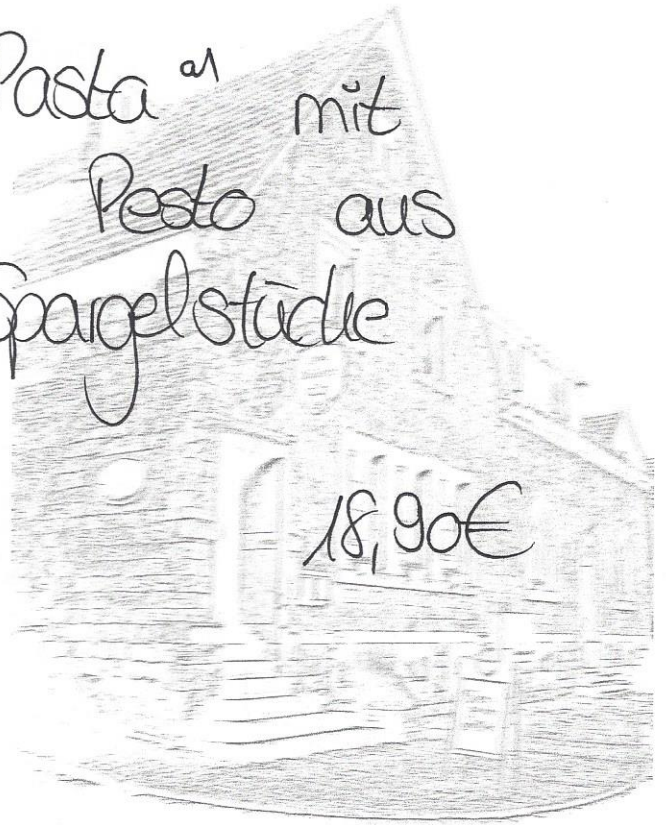 Pasta a1 mit
Pesto aus
Spargelstücke
18,90€